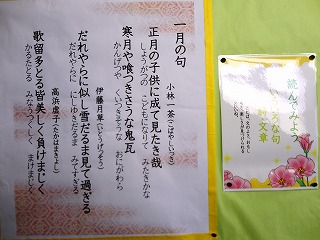 一月の句
小林一茶(こばやしいっさ)
正月の子供に成て見たき哉
しょうがつの　こどもになりて　みたきかな
寒月や喰つきさうな鬼瓦
かんげつや　くいつきそうな　おにがわら
伊藤月草(いとうげっそう)
だれやらに似し雪だるま見て過ぎる
だれやらに　にしゆきだるま　みてすぎる
高浜虚子(たかはまきょし)
歌留多とる皆美しく負けまじく
かるたとる　みなうつくしく　まけまじく
読んでみよう
いろいろな句
や文章